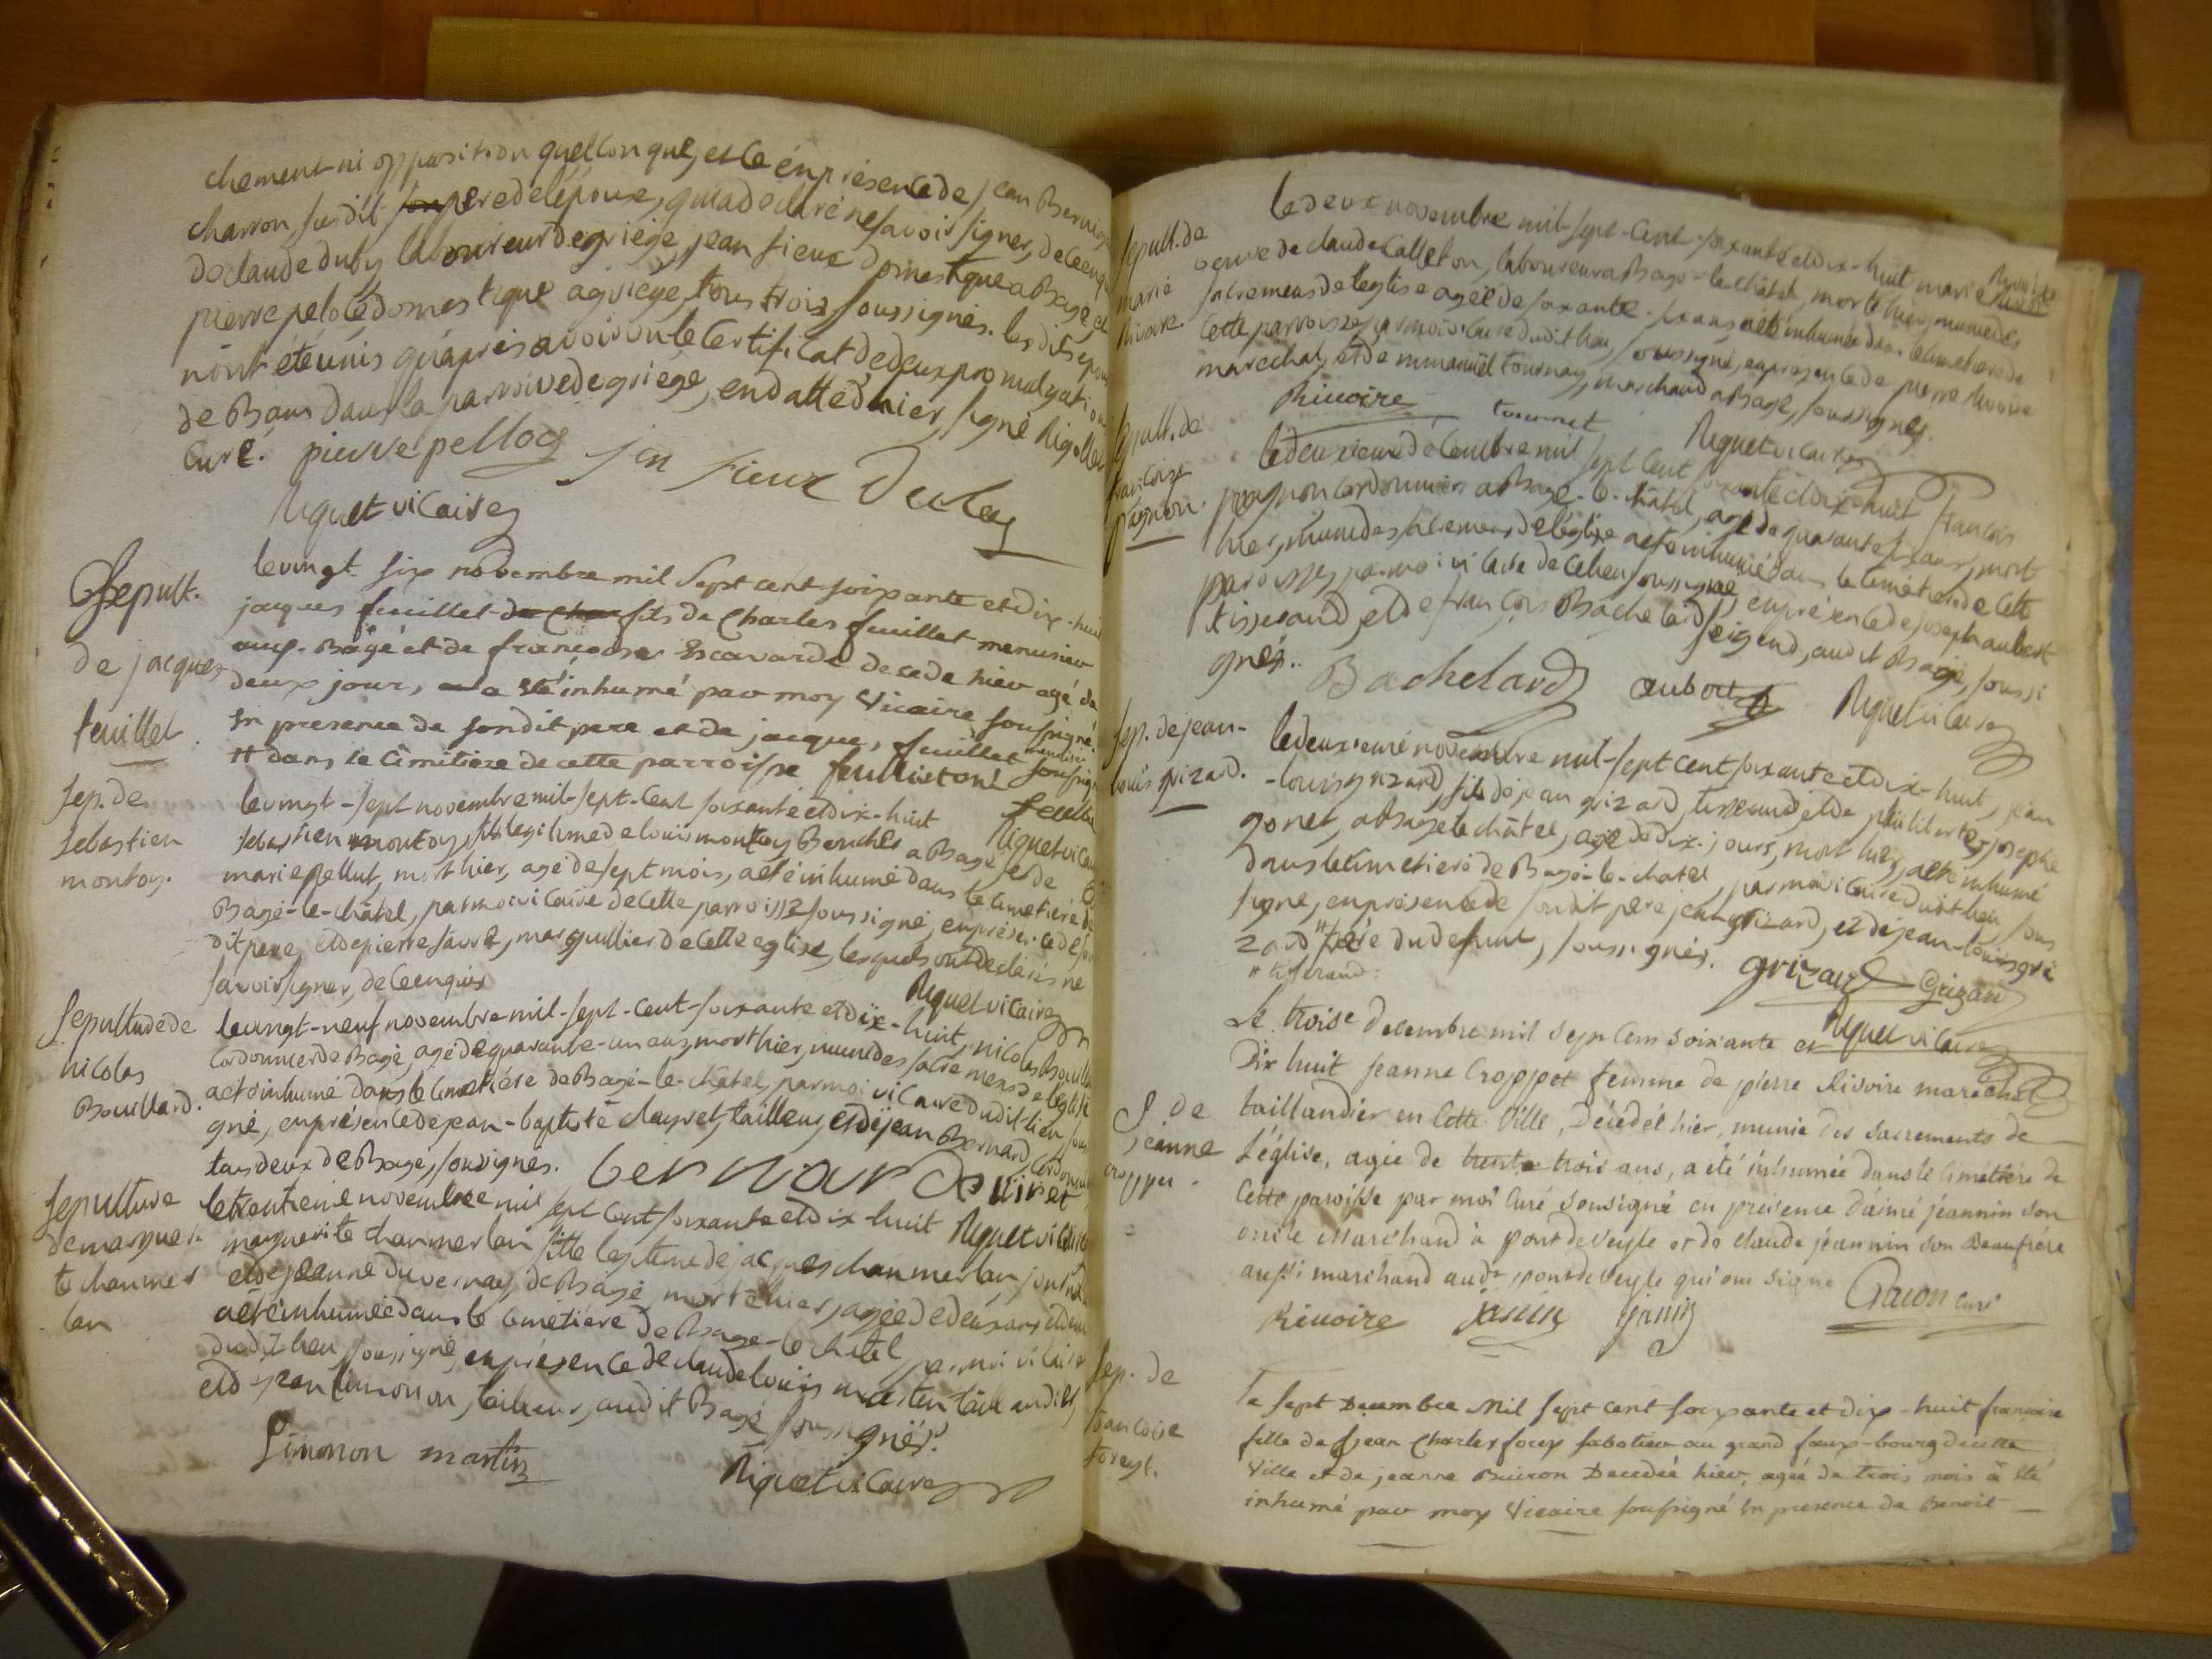 chement ni opposition quelconque, et ce en présence de jean
charron, susdit père de l'épouse, qui a déclaré ne savoir signer, de ce enquis
de claude duby laboureur de griége, jean sieux domestique a Bagé, et
pierre peloce domestique a griége, tous trois soussignés. les dits epoux
n'ont été unis qu'après avoir vu le certificat de deux promulgations
de Bans dans la parroisse de griége, en datte d'hier, signé
Curé. pierre pelloq jen sieux Duby
Riguet vicaire
Sepult.
de jacques
feuillet
le vingt six novembre mil Sept cent soixante et dix-huit
jacques feuillet fils de Charles feuillet menusier
aux. Bagé et de francoise Escavarde decede hier agé de
deux jours, a été inhumé par moy Vicaire soussigné #
En presence de sondit pere et de jacques feuillet menusier soussigné
# dans le Cimitiere de cette parroisse
Riguet vicaire
Sep. de
Sebastien
montoy.
le vingt-sept novembre mil-sept-cent soixante et dix-huit
sebastien montoy, fils legitime de louïs montoy a Bagé et de
marie pellut, mort hier, agé de sept mois, a été inhumé dans le cimetiére de
Bagé-le-châtel, par moi vicaire de cette parroisse soussigné, en présence de son
dit pere, et de pierre favre, marguillier de cette eglise, lesquels ont declarés ne
savoir signer, de ce enquis
Riguet vicaire
Sepulture de
nicolas
Bouillard.
le vingt-neuf novembre mil-sept-cent-soixante et dix-huit, nicolas Bouillard
Cordonnier de Bagé, agé de quarante-un ans, mort hier, muni des sacremens de l'église
a été inhumé dans le cimetiére de Bagé-le-châtel, par moi vicaire dudit lieu sous
gné, en présence de jean-baptiste clayret, tailleur, et de jean Bernard, cordonnier
tous deux de Bagé, soussignés. bernard
Riguet vicaire
Sepulture
de margueri
te chaumer
lan
le trentieme novembre mil sept cent soixante et dix-huit
marguerite chaumerlan fille legitime de jacques chaumerlan
et de jeanne duvernay, de Bagé, morte hier, agée de deux ans et demi
a été inhumée dans le cimétiére de Bagé-le-châtel par moi vicaire
dudit lieu, soussigné, en présence de claude louis martin taillandier,
et de jean simonon, tailleur, audit Bagé soussignés.
Simonon martin
Riguet vicaire
Sepult. de
marie
Rivoire.
le deux novembre mil-sept-cent-soixante et dix-huit marie Rivoire
veuve de claude Calleton, laboureur a Bagé-le-châtel, morte hier, munie des
sacremens de l'eglise agée de soixante ans, a été inhumée dans le cimetiere de
Cette parroisse, par moi vicaire dudit lieu, soussigné, en présence de pierre Rivoire
marechal, et de emmanuël tournay, marchand a Bagé, soussignés.
Rivoire tournet Riguet vicaire
Sepult. de
francoise
pagnon.
le deuxieme décembre mil sept cent soixante et dix-huit francois
pagnon cordonnier a Bagé-le-châtel, agé de quarante six ans, mort
hier, muni des sacremens de l'église a été inhumé dans le cimétiere de cette
paroisse, par moi vicaire de ce lieu soussigné, en présence de joseph aubert
tisserand, et de françois Bachelard, audit Bagé, soussi
gnés. Bachelard aubert Riguet vicaire
Sep. de jean-
louis grizard.
le deuxieme novembre mil-sept cent soixante et dix-huit, jean
-louis grizard, fils de jean grizard, tisserand, et de philiberte-josephe
gonet, a Bagé le châtel, agé de dix-jours, mort hier, a été inhumé
dans le cimetiere de Bagé-le-châtel, par moi vicaire dudit lieu, sous
signé, en présence de sondit pere jean grizard, et de jean-louis gri
zard # frére du defunt, soussignés. grizard Grizard
# tisserand.
Riguet vicaire
S. de
jeanne
croppet.
Le troise decembre mil sept cent soixante et
Dix huit jeanne Croppet femme de pierre Rivoire marechal
taillandier en Cette Ville, Décedée hier, munie des sacrements de
L'église, agée de trente trois ans, a été inhumée dans le cimetiére de
Cette paroisse par moi Curé soussigné en présence d'aimé jeannin son
oncle Marchand à pont de veyle et de claude jéannin son Beaufrére
aussi marchand audt pont de Veyle qui ont signé
Rivoire janin janin curé
Sep. de
francoise
foreyt.
Le sept Decembre Mil sept cent soixante et dix-huit francoise
fille de jean Charles sabotier au grand faux-bourg de cette
Ville et de jeanne Decedée hier, agée de trois mois à été
inhumé par moy Vicaire soussigné En presence de Benoit